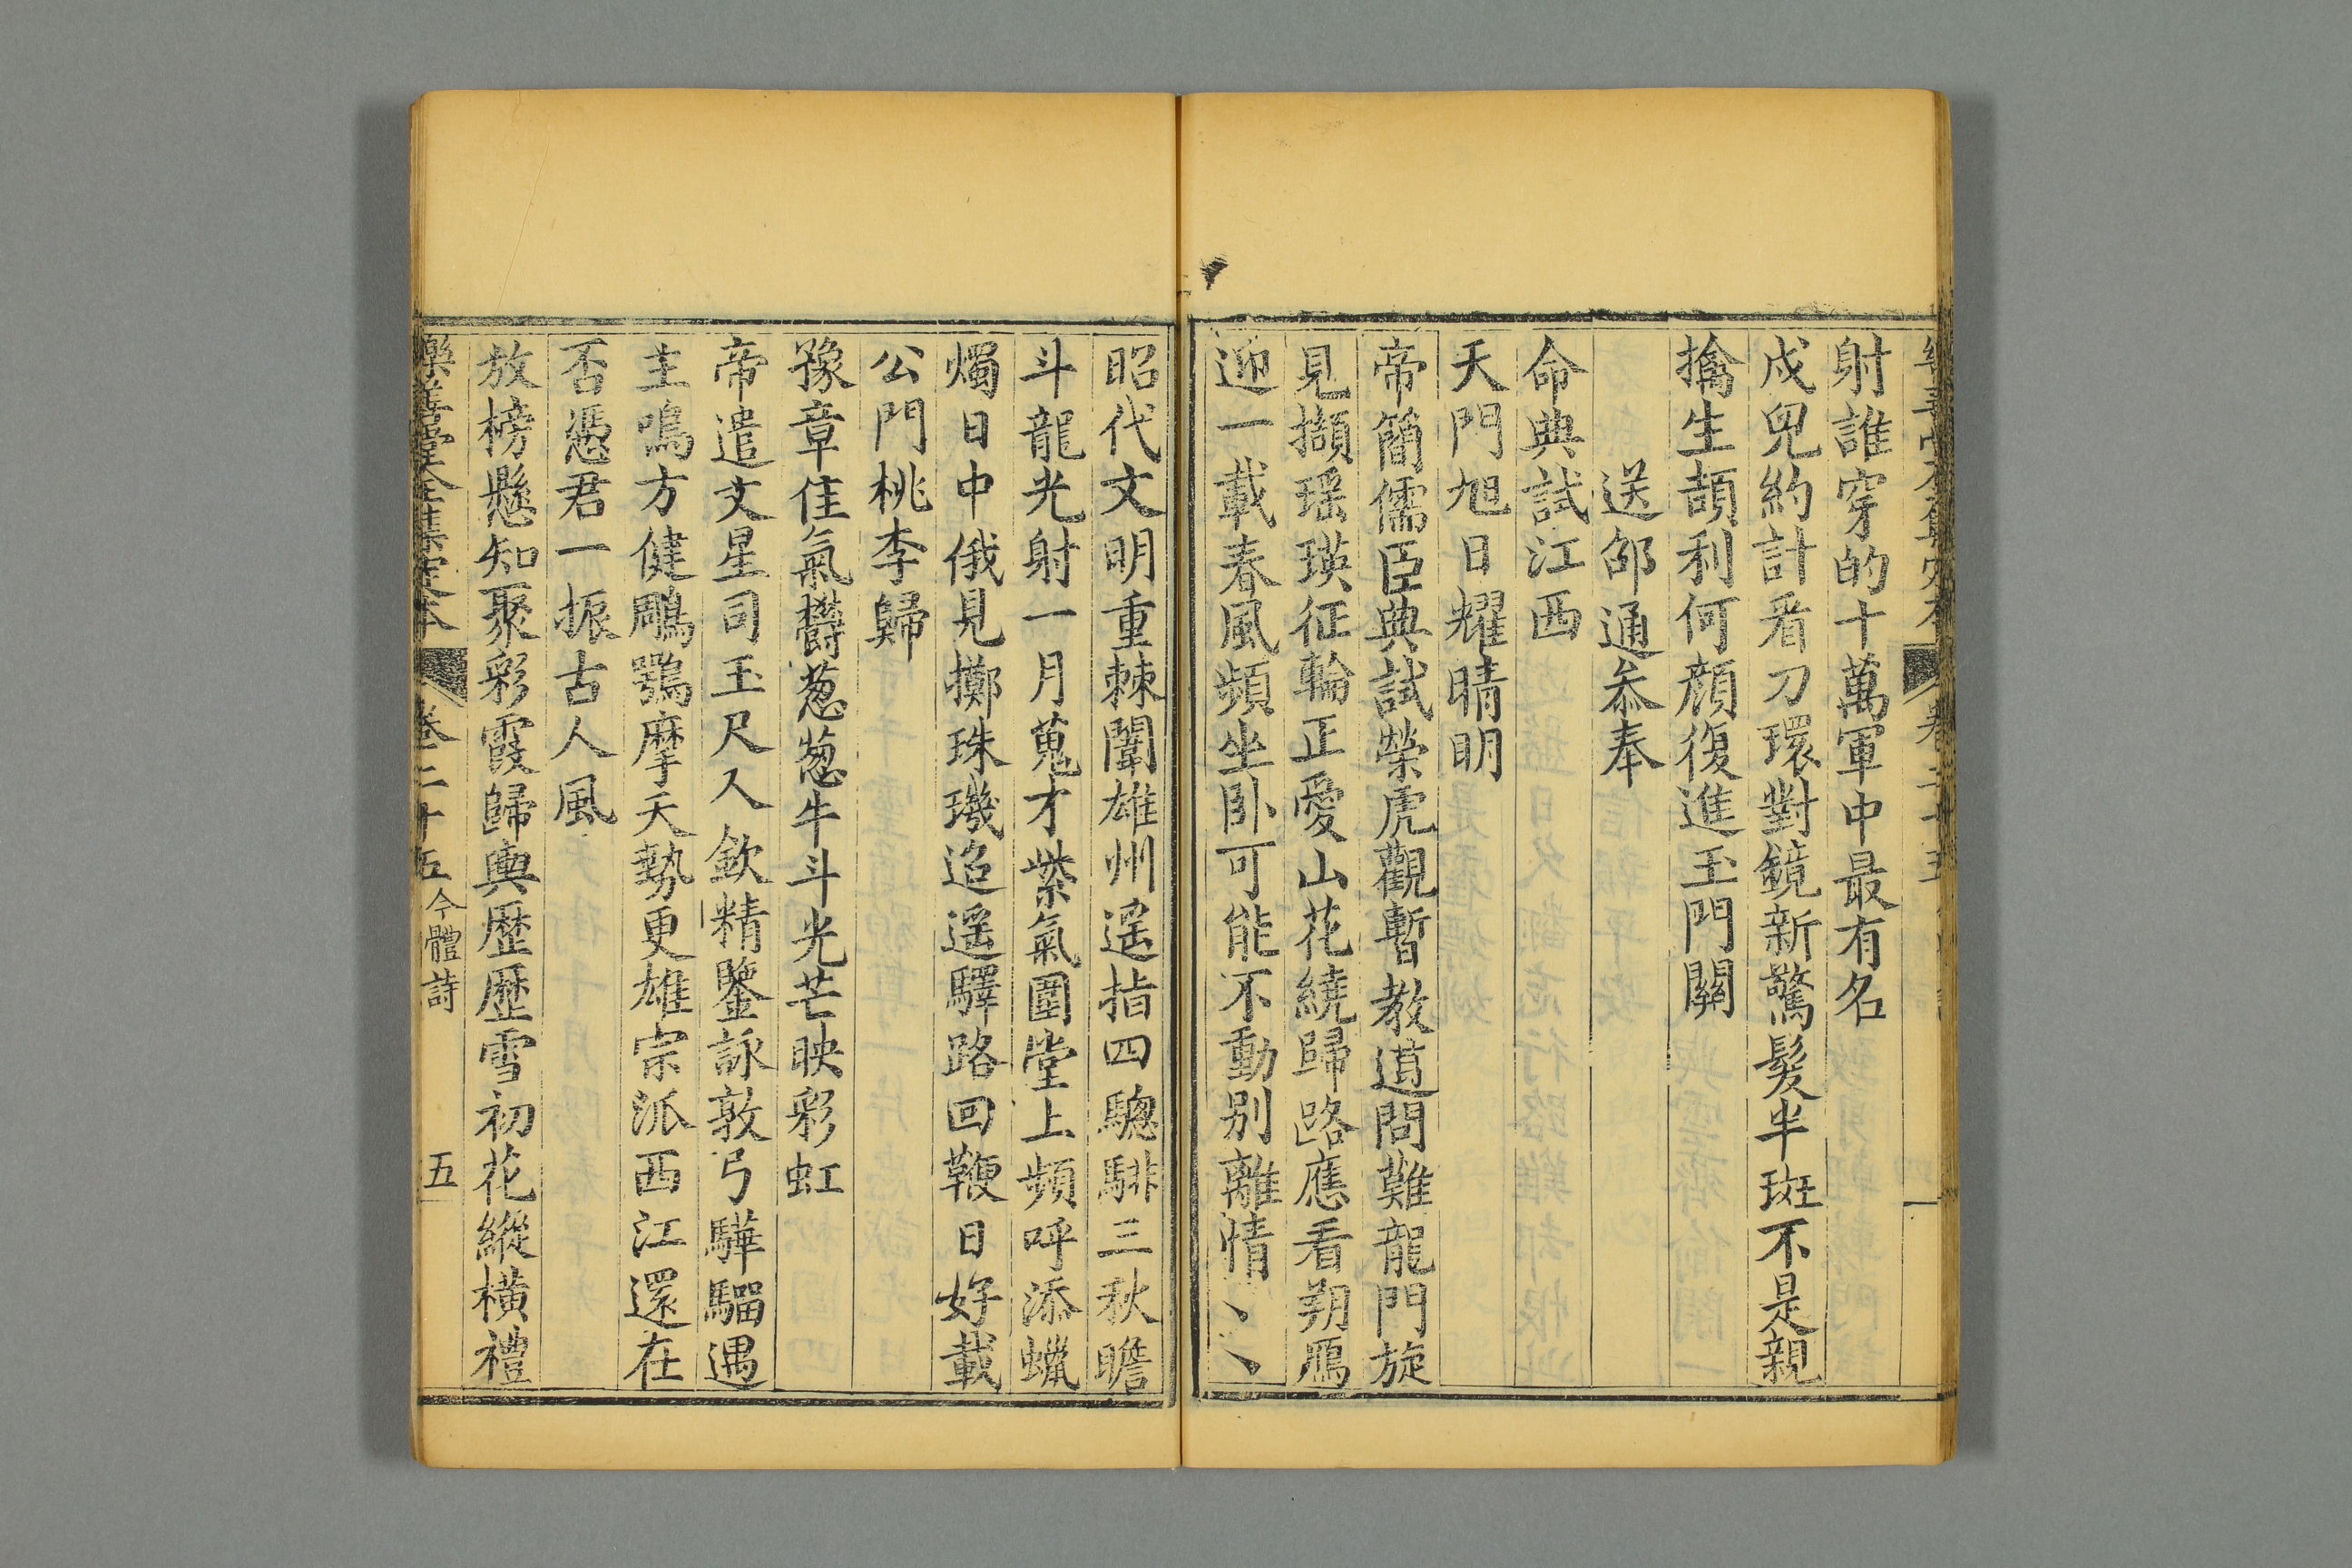 射誰穿的十萬軍中最有名
戍兜約計看刀環對鏡新驚髮半斑不是親
擒生頡利何顔復進玉門關
送邵通叅奉
命典試江西
天門旭日耀晴明
帝簡儒臣典試榮虎觀暫教遒問難龍門旋
見擷瑶瑛征輪正愛山花繞歸路應看朔鴈
迎一載春風頻坐卧可能不動别離情
昭代文明重棘闈雄州遥指四騘騑三秋瞻
斗龍光射一月蒐才紫氣圍堂上頻呼添蠟
燭日中俄見擲珠璣迢遥驛路回鞭日好載
公門桃李歸
豫章佳氣欝葱葱牛斗光芒映彩虹
帝遣文星司玉尺人欽精鑒詠敦弓驊騮遇
主鳴方健鵰鶚摩天勢更雄宗派西江還在
否憑君一振古人風
放榜懸知聚彩霞歸輿歴歴雪初花縱横禮
樂善堂全集定本 卷二十五 今體詩 五